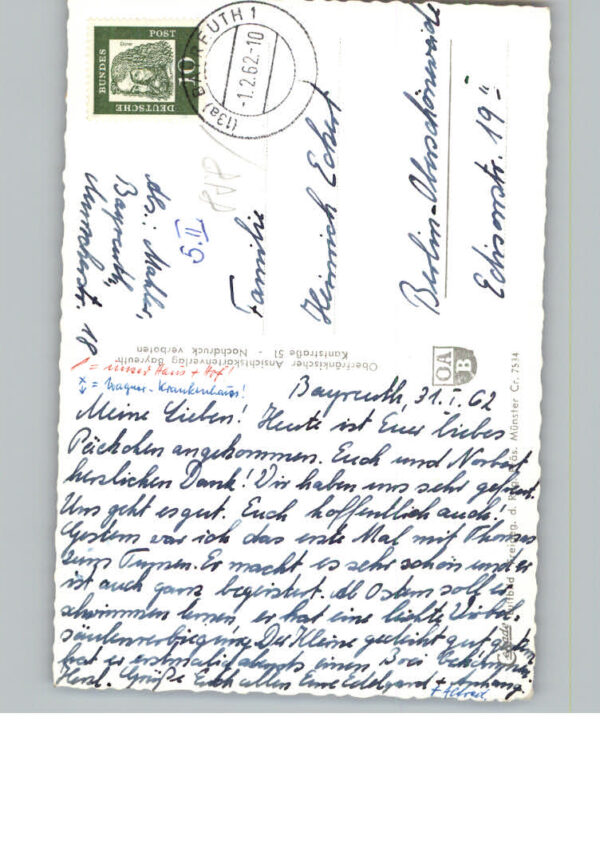 DEUTSCHE
BUNDES
POST
10
Dürer
(13a) BAYREUTH 1
-1.2.62-10
Abs.: Mahler,
Bayreuth,
18
5.II
Familie
Heinrich Eckert
Berlin-Oberschöneweide
Edisonstr. 19 II
Oberfränkischer Ansichtskartenverlag Bayreuth
Kantstraße 51 - Nachdruck verboten
OAB
= unser Haus + Hof!
= Wagner-Krankenhaus!
Bayreuth, 31.I.62
Meine Lieben! Heute ist Euer liebes
Päckchen angekommen. Euch und Norbert
herzlichen Dank! Wir haben uns sehr gefreut.
Uns geht es gut. Euch hoffentlich auch!
Gestern war ich das erste Mal mit Thomas
zum Turnen. Er macht es sehr schön und er
ist auch ganz begeistert. Ab Ostern soll er
schwimmen lernen, er hat eine leichte Wirbel-
säulenverbiegung. Der Kleine gedeiht gut, gestern
hat er erstmalig abends einen Brei bekommen.
Herzl. Grüße Euch allen Eure Edelgard + Anhang.
+ Alfred.
Luftbild Freigeg. d. Reg. Präs. Münster Cr. 7534